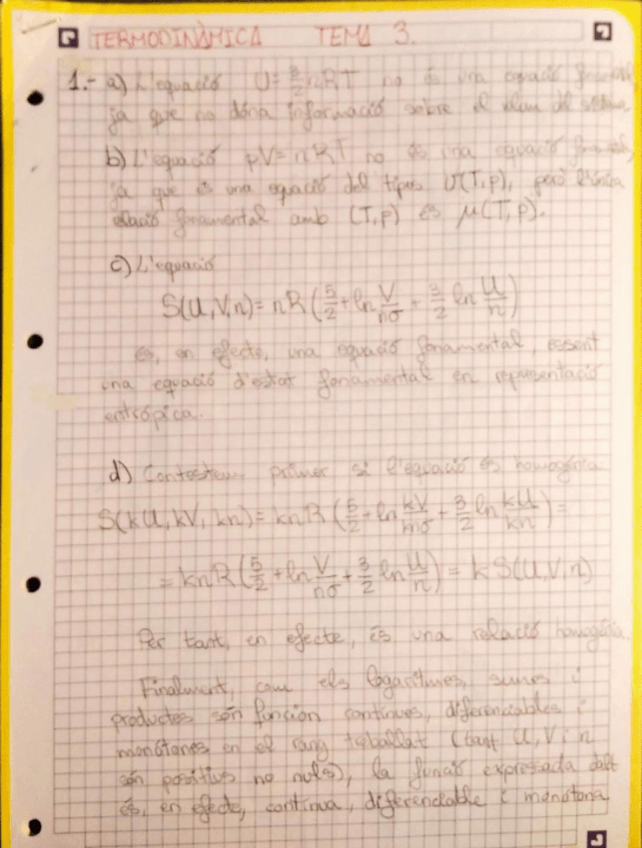 TERMODINÀMICA TEMA 3.
1.- a) L'equació U = 3/2 nRT no és una equació
ja que no dóna informació sobre el volum del sistema.
b) L'equació pV = nRT no és una equació
ja que és una equació del tipus (T,p), però l'única
relació fonamental amb (T,p) és μ(T,p).
c) L'equació
S(U,V,n) = nR(5/2 + ln V/nσ + 3/2 ln U/n)
és, en efecte, una equació fonamental, essent
una equació d'estat fonamental en representació
entròpica.
d) Contestem primer si l'equació és homogènia
S(kU, kV, kn) = knR(5/2 + ln kV/ + 3/2 ln kU/kn) =
= knR(5/2 + ln V/nσ + 3/2 ln U/n) = k S(U,V,n)
Per tant, en efecte, és una relació homogènia.
Finalment, com els logaritmes, sumes i
productes són funcion contínues, diferenciables i
monòtones en el rang treballat (tant U, V i n
són positius no nuls), la funció expressada
és, en efecte, contínua, diferenciable i monòtona